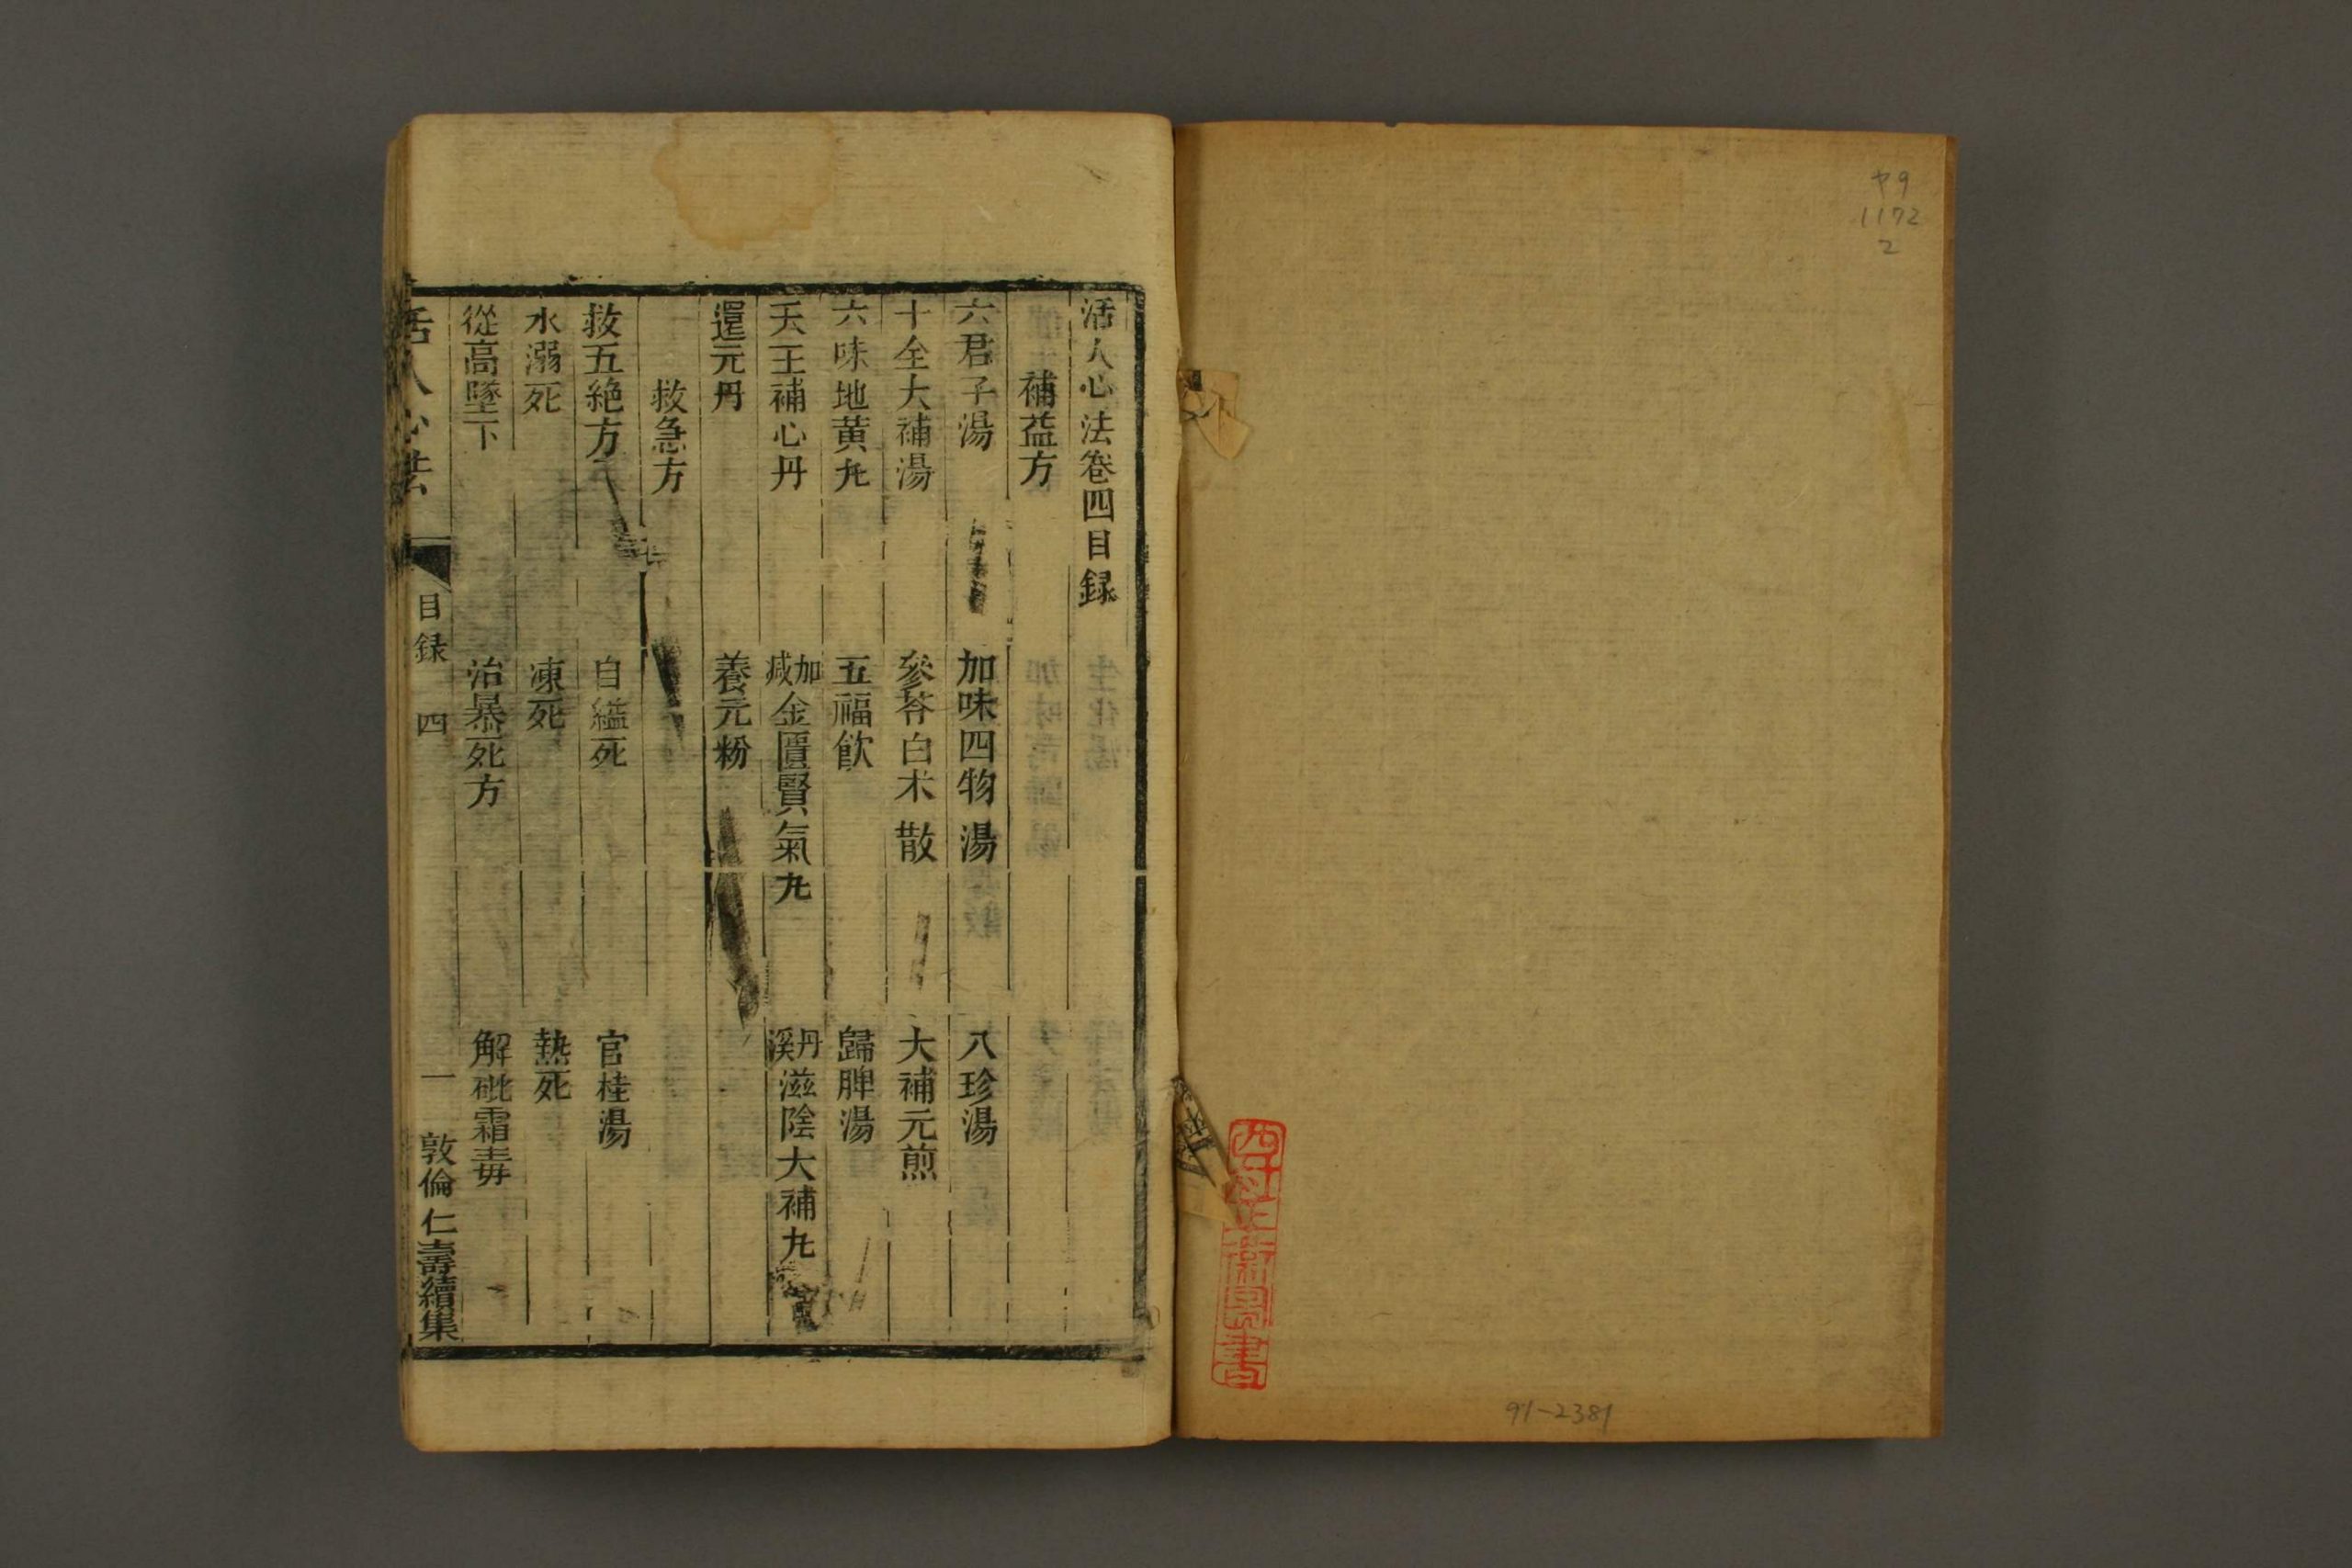 ヤ9
1172
2
91-2381
活人心法卷四目録
補益方
六君子湯 加味四物湯 八珍湯
十全大補湯 參苓白朮散 大補元煎
六味地黄九 五福飲 歸脾湯
天王補心丹 加減金匱腎氣九 丹溪滋陰大補九
還元丹 養元粉
救急方
救五絶方 自縊死 官桂湯
水溺死 凍死 熱死
從高墜下 治暴死方 解砒霜毒
活人心法 目録 四 一 敦倫 仁壽續集